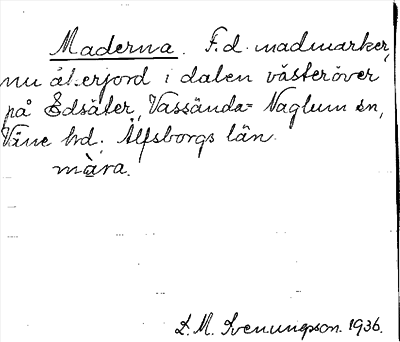 Maderna. F.d. madmarker,
nu åkerjord i dalen västeröver
på Edsäter, Vassända-Naglum sn,
Väne hd, Älfsborgs län.
màra.
D. M. Svenungsson 1936.